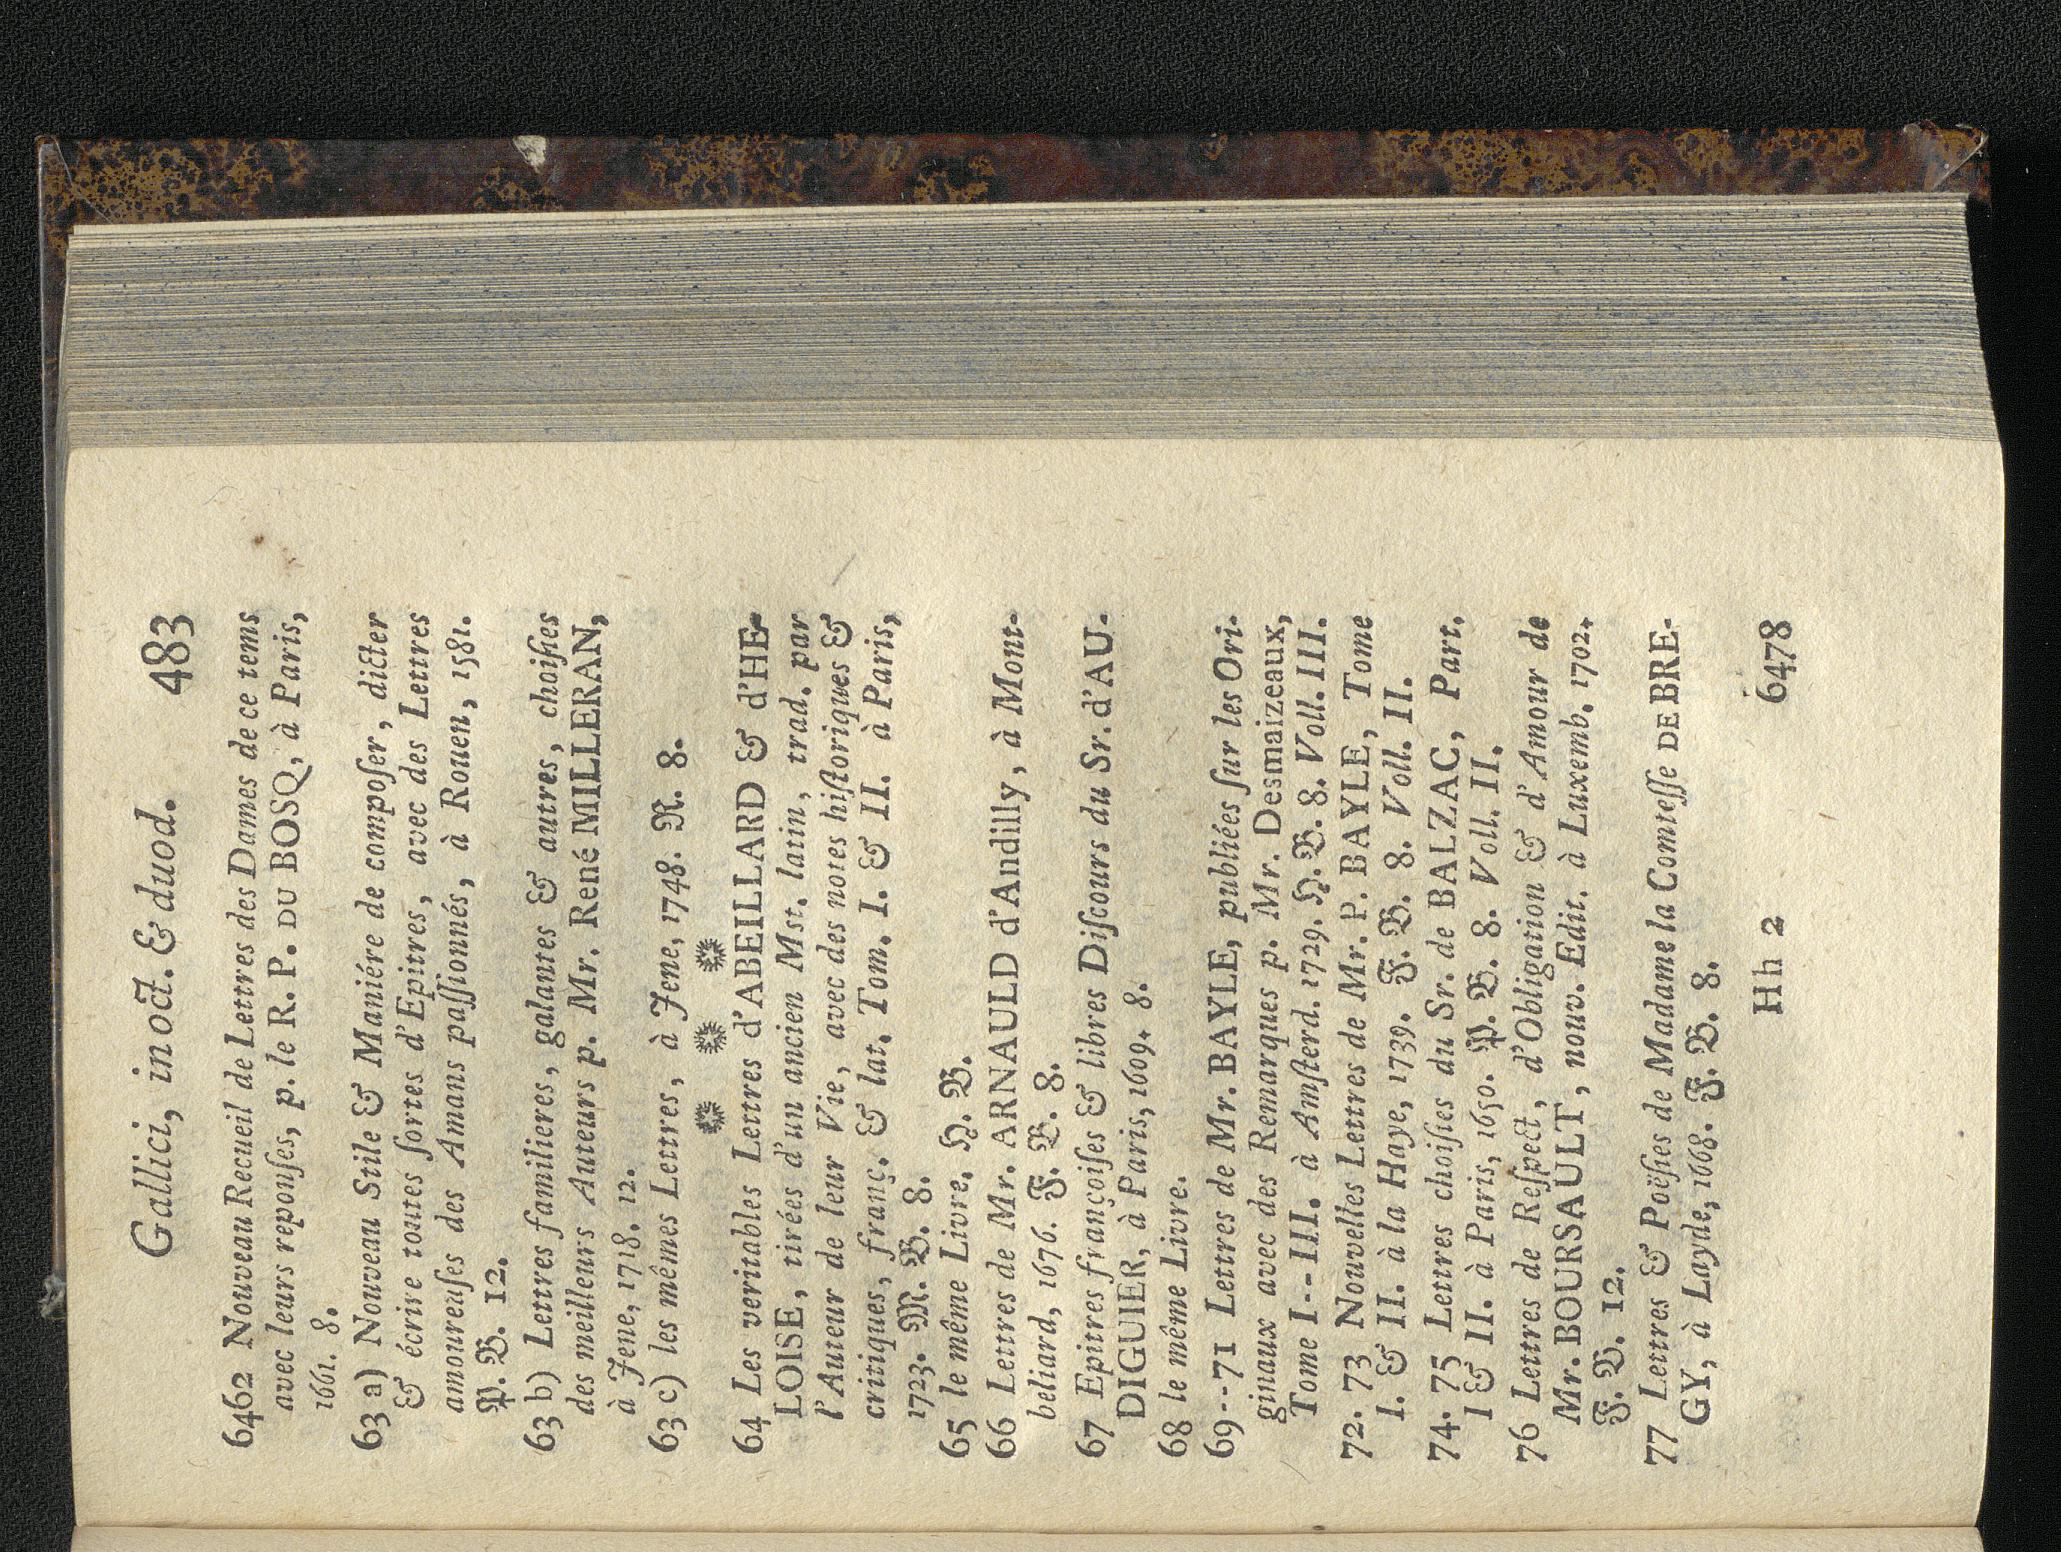 Gallici, in oct. & duod. 483
6462 Nouveau Recueil de Lettres des Dames de ce tems
avec leurs reponſes, p. le R. P. DU BOSQ, à Paris,
1661. 8.
63 a) Nouveau Stile & Maniére de compoſer, dicter
& écrire toutes ſortes d'Epitres, avec des Lettres
amoureuſes des Amans paſſionnés, à Rouen, 1581.
P. B. 12.
63 b) Lettres familieres, galantes & autres, choiſies
des meilleurs Auteurs p. Mr. René MILLERAN,
à Jene, 1718. 12.
63 c) les mêmes Lettres, à Jene, 1748. R. 8.
64 Les veritables Lettres d'ABEILLARD & d'HE-
LOISE, tirées d'un ancien Mst. latin, trad. par
l'Auteur de leur Vie, avec des notes hiſtoriques &
critiques, franç. & lat. Tom. I. & II. à Paris,
1723. M. B. 8.
65 le même Livre. H. B.
66 Lettres de Mr. ARNAULD d'Andilly, à Mont-
beliard, 1676. F. B. 8.
67 Epitres françoiſes & libres Diſcours du Sr. d'AU-
DIGUIER, à Paris, 1609. 8.
68 le même Livre.
69--71 Lettres de Mr. BAYLE, publiées ſur les Ori-
ginaux avec des Remarques p. Mr. Desmaizeaux,
Tome I--III. à Amſterd. 1729. H. B. 8. Voll. III.
72. 73 Nouvelles Lettres de Mr. P. BAYLE, Tome
I. & II. à la Haye, 1739. F. B. 8. Voll. II.
74. 75 Lettres choiſies du Sr. de BALZAC, Part.
I & II. à Paris, 1650. P. B. 8. Voll. II.
76 Lettres de Reſpect, d'Obligation & d'Amour de
Mr. BOURSAULT, nouv. Edit. à Luxemb. 1702.
F. B. 12.
77 Lettres & Poëſies de Madame la Comteſſe DE BRE-
GY, à Layde, 1668. F. B. 8.
Hh 2 6478